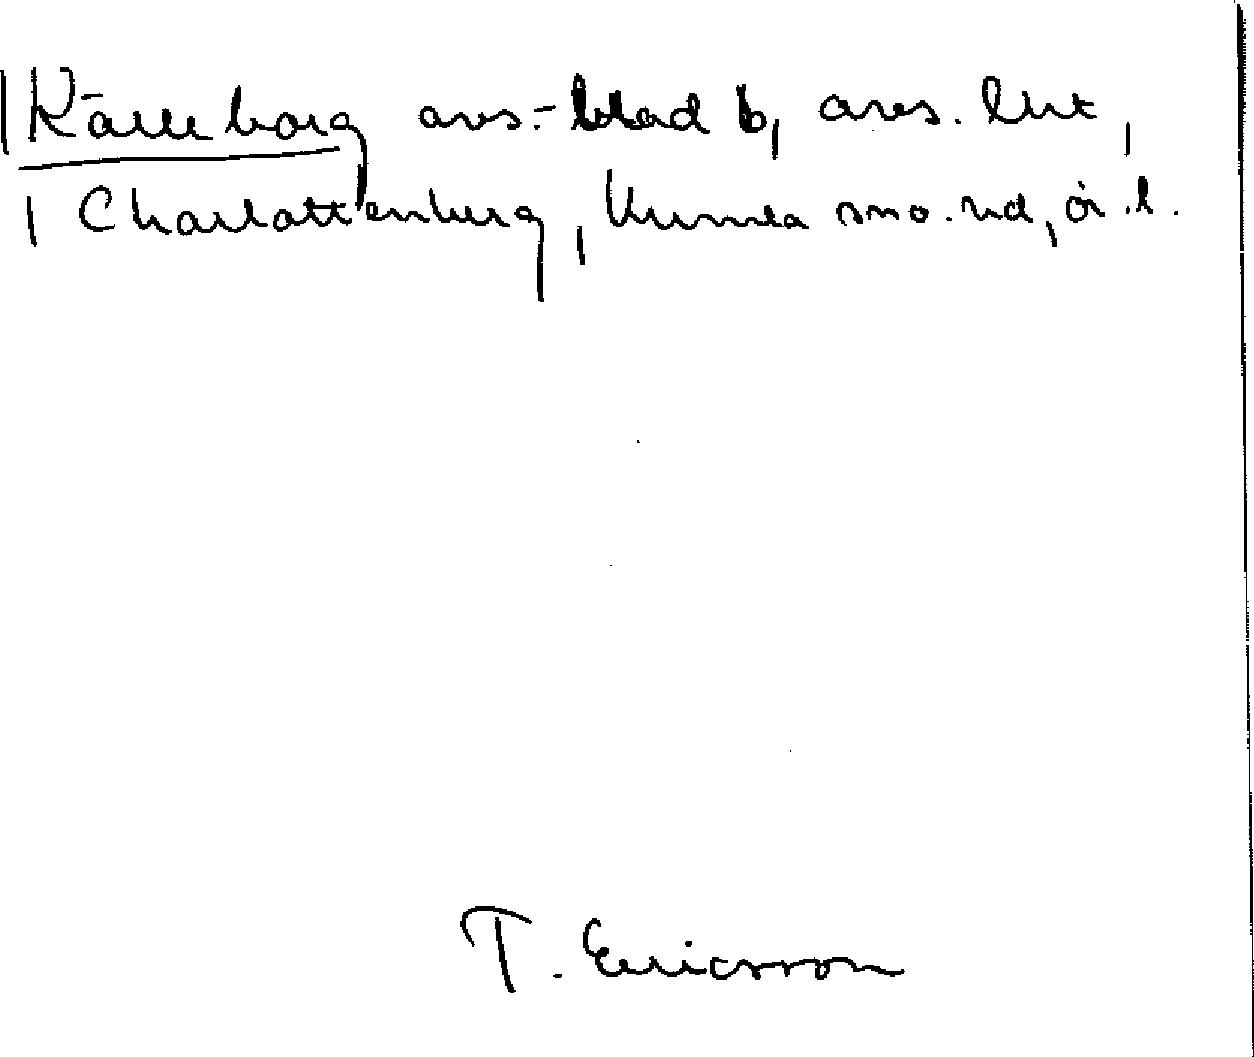 Källeborg avs.-blad b, avs. lht,
Charlottenberg, Kumla sno. hd, ör. l.
T. Ericsson